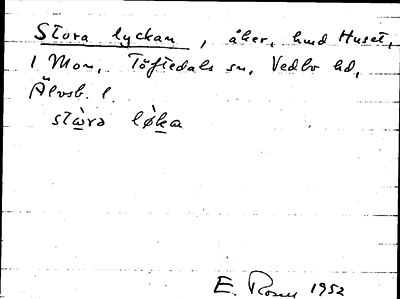 Stora lyckan, åker, hmd Huset,
1 Mon, Töftedals sn, Vedbo hd,
Älvsb. l.
stẁra lø̀ka
E. 1952